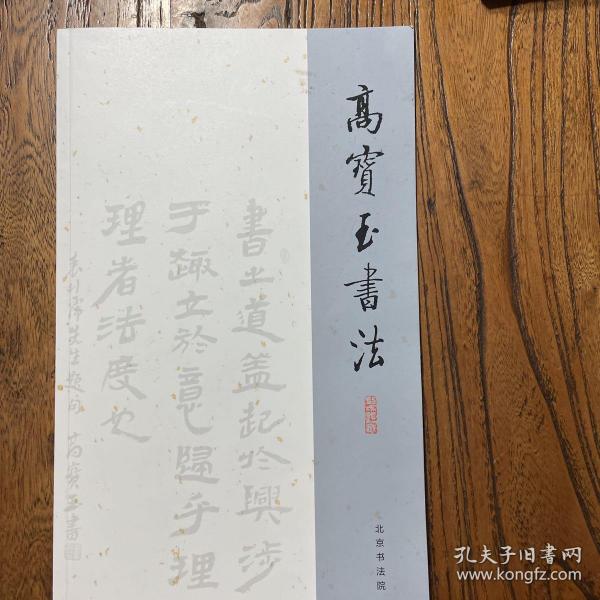 高寶玉書法
北京书法院
書之道盖起於興涉
于趣立於意歸乎理
理者法度也
先生题句 高寶玉書
孔夫子旧书网
www.kongfz.com